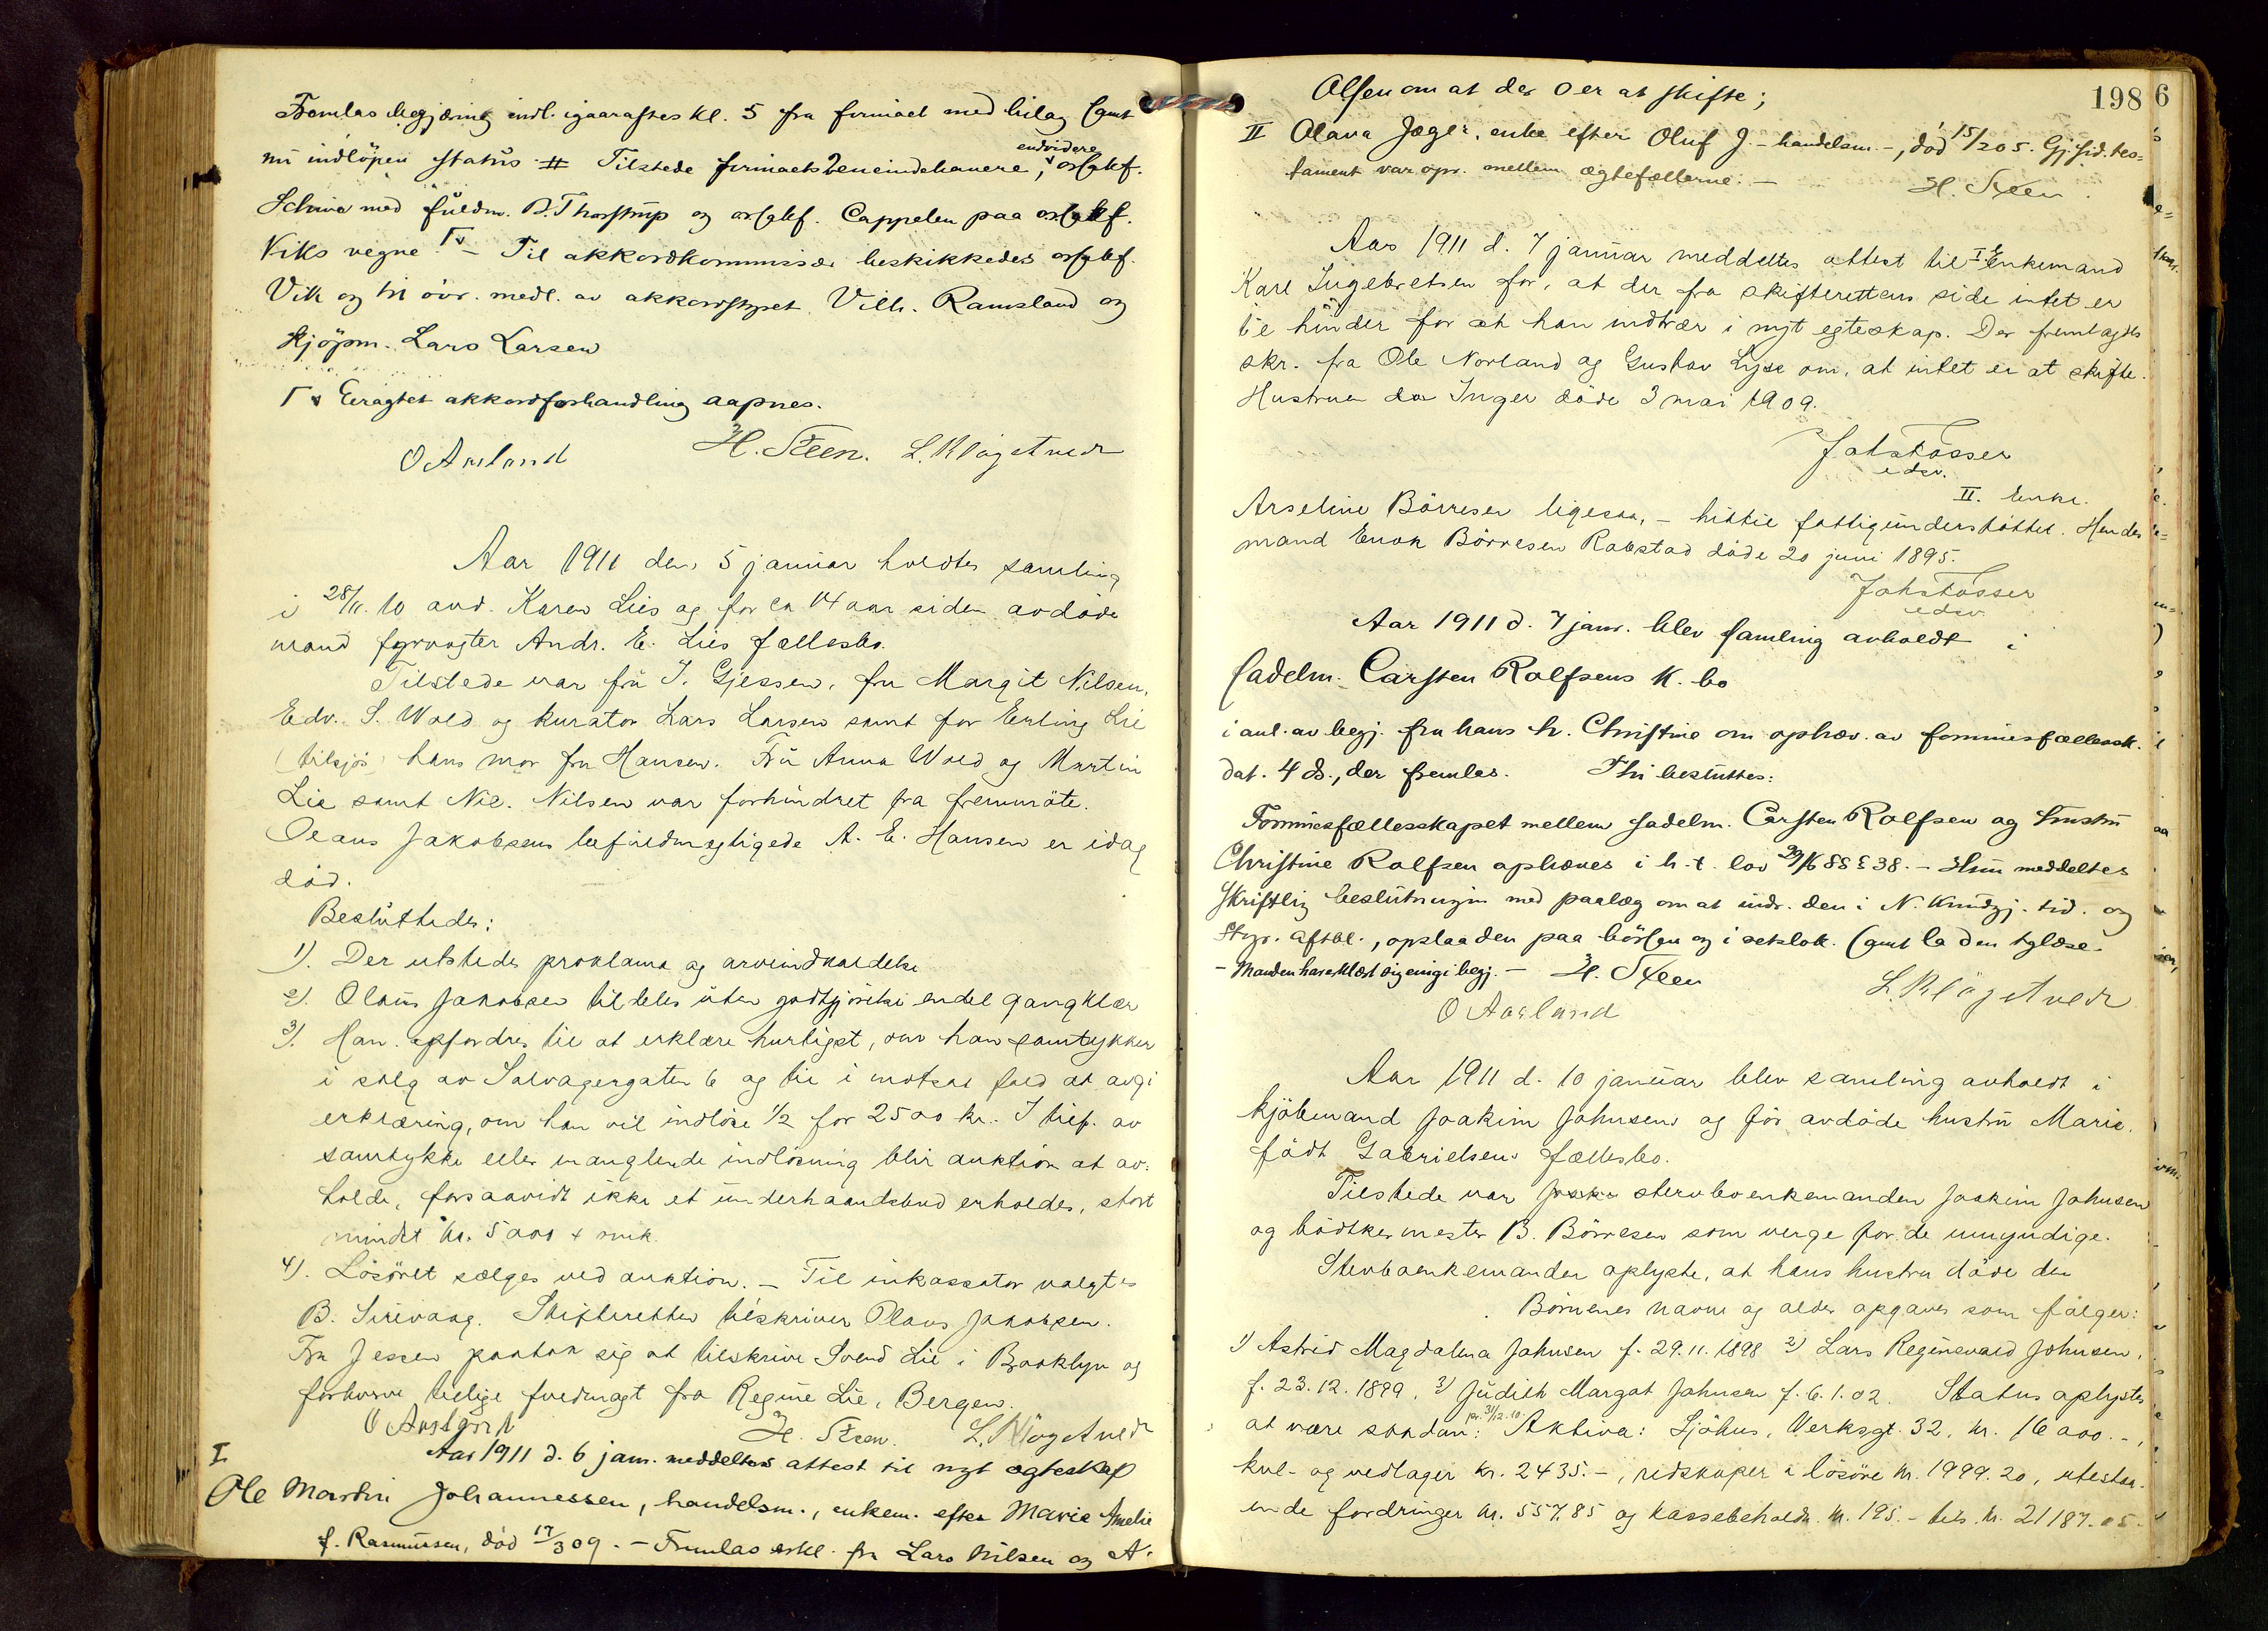 Fremlas begjæring indl. igaaraftes kl. 5 fra firmaet med bilag samt
nu indlöpen status # Tilstede firmaets 2 eneindehavere, endvidere orsakf.
Schiwe med fuldm. B. Thorstrup og orsakf. Cappelen paa orsakf.
Viks vegne. – Til akkordkommissær beskikkedes orsakf.
Vik og til övr. medl. av akkordstyret Vilh. Ramsland og
Kjöpm. Lars Larsen
Γv Eragtet akkordforhandling aapnes.
O Aasland H. Steen. L. Klögetvedt
Aar 1911 den 5 januar holdtes samling
i 28/11.10 avd. Karen Lies og for ca 14 aar siden avdöde
mand fyrvogter Andr. E. Lies fællesbo.
Tilstede var fru I. Gjessen, fru Margit Nilsen,
Edv. S. Wold og kurator Lars Larsen samt for Erling Lie
(tilsjös) hans mor fru Hansen. Fru Anna Wold og Martin
Lie samt Nic. Nilsen var forhindret fra fremmöte.
Olaus Jakobsens befuldmægtigede A. E. Hansen er idag
död.
Besluttedes:
1). Der utstedes proklama og arveindkaldelse
2). Olaus Jakobsen tildeles uten godtgjörelse endel gangklær
3). Han opfordres til at erklære hurtigst, om han samtykker
i salg av Salvagergaten 6 og til i motsat fald at avgi
erklæring, om han vil indlöse 1/2 for 2500 kr. I tilf. av
samtykke eller manglende indlösning blir auktion at av-
holde, forsaavidt ikke et underhaandsbud erholdes, stort
mindst kr. 5000 + omk.
4). Lösöret sælges ved auktion. – Til inkassator valgtes
B. Sirevaag. Skifteretten tilskriver Olaus Jakobsen.
Fru Jessen paatok sig at tilskrive Svend Lie i Brooklyn og
forhverve tillige fuldmagt fra Regine Lie, Bergen.
O Aasland H. Steen. L. Klögetvedt
I Aar 1911 d. 6 janr. meddeltes attest til nyt egteskap
Ole Martin Johannessen, handelsm., enkem. efter Marie Amelie
f. Rasmussen, död 17/3 09. – Fremlas erkl. fra Lars Nilsen og A.
198 6
Olsen om at der 0 er at skifte;
II Olava Jæger, enke efter Oluf J. – handelsm. –, död 15/2 05. Gj.sid. tes-
tament var opr. mellem ægtefællerne. – H. Steen.
Aar 1911 d. 7 januar meddeltes attest til I Enkemand
Karl Ingebretsen for, at der fra skifterettens side intet er
til hinder for at han indtrær i nyt egteskap. Der fremlagdes
skr. fra Ole Norland og Gustav Lyse om, at intet er at skifte.
Hustruen Inger döde 3 mai 1909.
edsv.
II. Enke
Arseline Börresen ligesaa, – hittil fattigunderstöttet. Hendes
mand Enok Börresen Rabstad döde 20 juni 1895.
edsv.
Aar 1911 d. 7 janr. blev samling avholdt i
sadelm. Carsten Rolfsens K. bo
i anl. av begj. fra hans h. Christine om ophæv. av formuesfællessk.
dat. 4 ds., der fremlas. Thi besluttes:
Formuesfællesskapet mellem sadelm. Carsten Rolfsen og hustru
Christine Rolfsen ophæves i h. t. lov 29/6 88 § 38. – Hun meddeltes
skriftlig beslutningen med paalæg om at indr. den i N. Kundgj. tid. og
Stvgr. Aftbl., opslaa den paa börsen og i retslok. samt la den tglæse.
– Manden har erklært sig enig i begj. – H. Steen
O Aasland L. Klögetvedt
Aar 1911 d. 10 januar blev samling avholdt i
kjöbmand Joakim Johnsens og för avdöde hustru Marie,
födt Gabrielsens fællesbo.
Tilstede var sterv­boenkemanden Joakim Johnsen
og bödtkermester B. Börresen som verge for de umyndige.
Stervboenkemanden oplyste, at hans hustru döde den
. Börnenes navne og alder opgaves som fölger:
1) Astrid Magdalena Johnsen f. 29.11.1898 2) Lars Reginevald Johnsen,
f. 23.12.1899, 3) Judith Margot Johnsen f. 6.1.02. Status oplystes
at være saadan: pr. 31/12.10. Aktiva: Sjöhus, Verksgt. 32, kr. 16000.–,
kul- og vedlager kr. 2435.–, redskaper i lösöre kr. 1999.20, utestaa-
ende fordringer kr. 557.85 og kassebeholdn. kr. 195.– tils. kr. 21187.05.